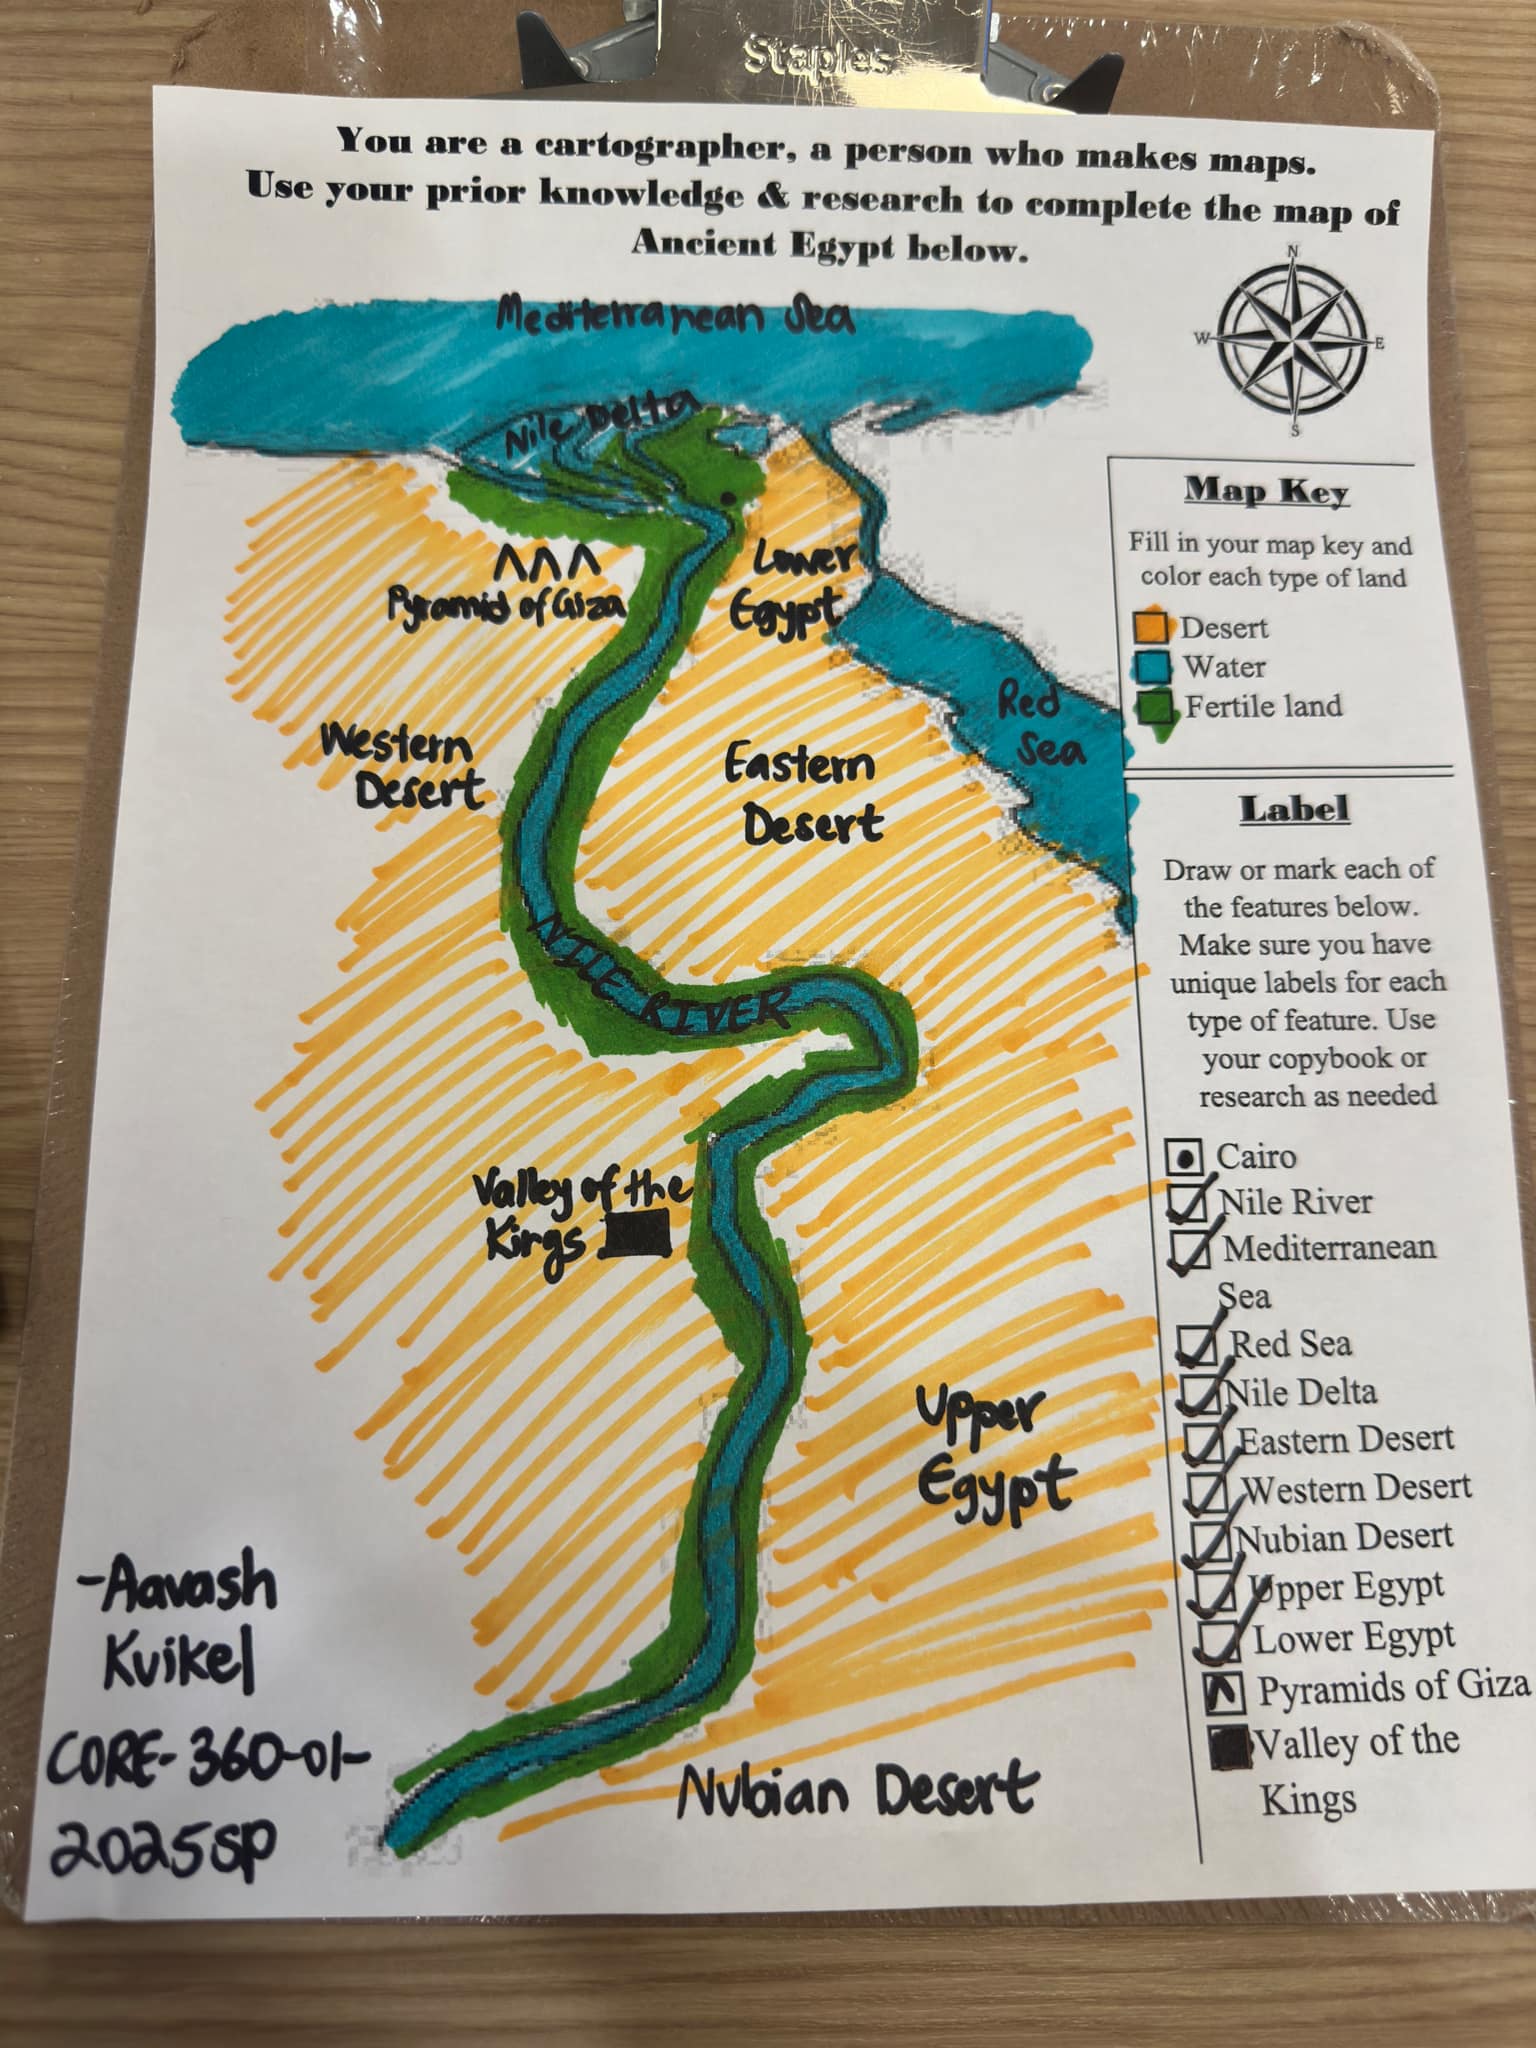 Staples
You are a cartographer, a person who makes maps.
Use your prior knowledge & research to complete the map of
Ancient Egypt below.
N
W
E
S
Mediterranean Sea
Nile Delta
Pyramid of Giza
Lower
Egypt
Western
Desert
Eastern
Desert
Red
Sea
NILE RIVER
Valley of the
Kings
Upper
Egypt
Nubian Desert
-Aavash
Kuikel
CORE-360-01-
2025SP
Map Key
Fill in your map key and
color each type of land
Desert
Water
Fertile land
Label
Draw or mark each of
the features below.
Make sure you have
unique labels for each
type of feature. Use
your copybook or
research as needed
Cairo
Nile River
Mediterranean
Sea
Red Sea
Nile Delta
Eastern Desert
Western Desert
Nubian Desert
Upper Egypt
Lower Egypt
Pyramids of Giza
Valley of the
Kings